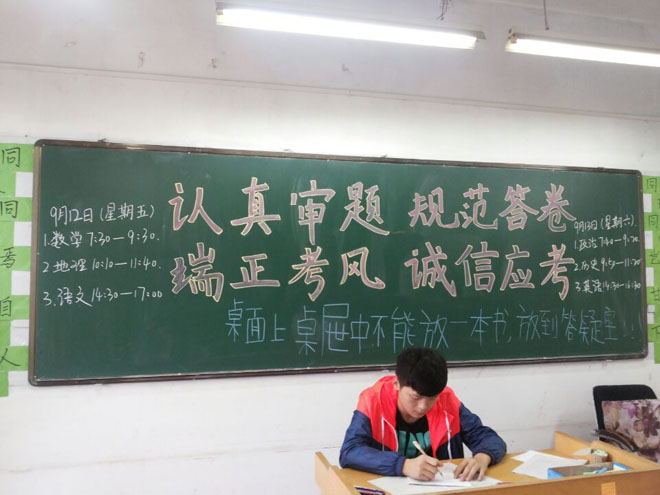 同
同
焉
自
人
9月12日(星期五)
1.数学7:30—9:30.
2.地理10:10—11:40.
3.语文14:30—17:00
认真审题 规范答卷
瑞正考风 诚信应考
桌面上 桌屉中不能放一本书,放到答疑室!
9月13日(星期六)
1.政治
2.历史
3.英语14:30—16:30